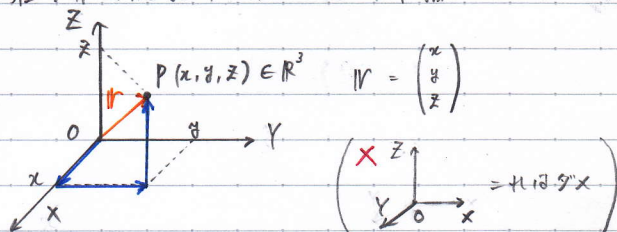 Z
z
P(x, y, z) ∈ ℝ³
𝕣 = (x y z)
𝕣
O
y
Y
x
X
× Z
Y O X
=れはダメ